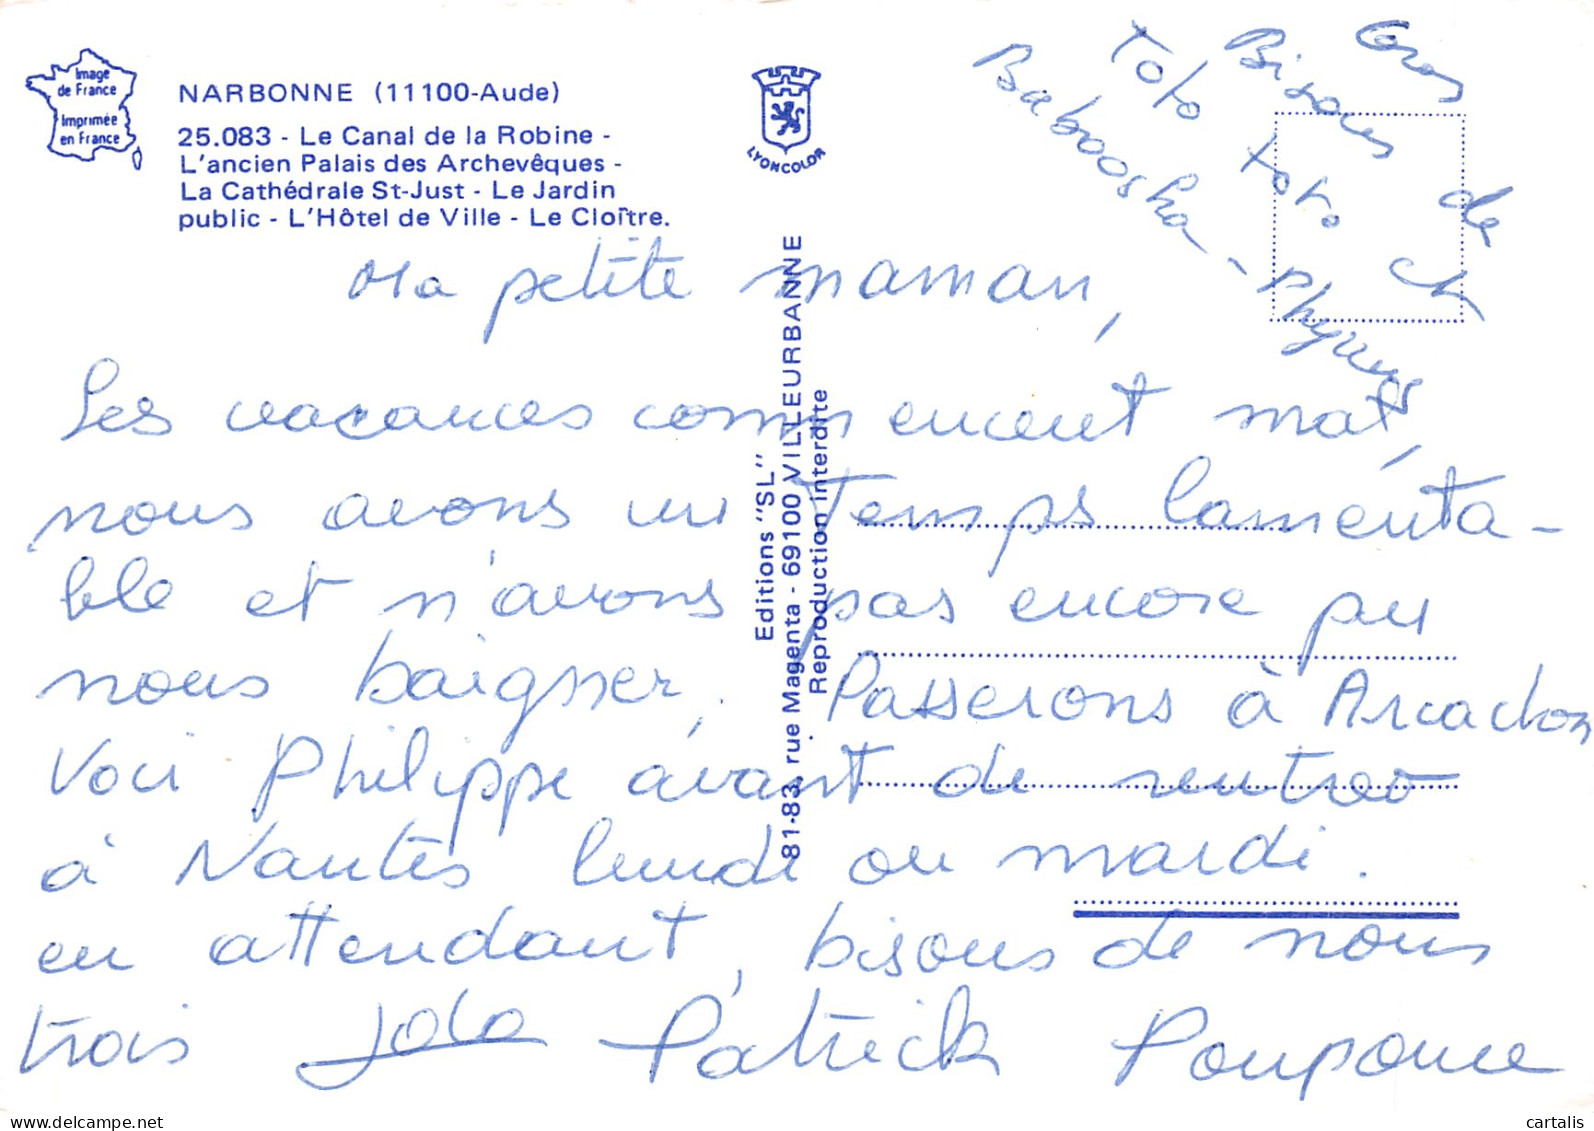 Image
de France
Imprimée
en France
NARBONNE (11100-Aude)
25.083 - Le Canal de la Robine -
L'ancien Palais des Archevêques -
La Cathédrale St-Just - Le Jardin
public - L'Hôtel de Ville - Le Cloître.
LYONCOLOR
Editions "SL"
81-83, rue Magenta - 69100 VILLEURBANNE
Reproduction interdite
Gros
Bisous de
Toto toto et
Baboosha -
Ma petite maman,
Les vacances commencent mal,
nous avons un temps lamenta-
ble et n'avons pas encore pu
nous baigner. Passerons à Arcachon
voir Philippe avant de rentrer
à Nantes lundi ou mardi.
en attendant, bisous de nous
trois Jolo Patrick Poupoune
cartalis
www.delcampe.net